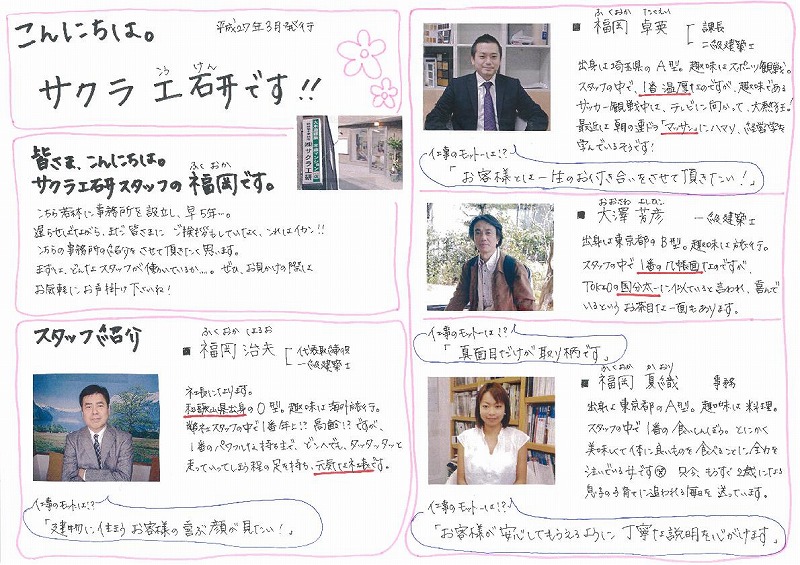 こんにちは。
平成27年3月発行
サクラ工研です!!
こう けん
皆さま、こんにちは。
サクラ工研スタッフの福岡です。
ふくおか
こちら若林に事務所を設立し、早5年…。
遅らせばながら、まだ皆さまに ご挨拶もしていなく、これはイカン!!
こちらの事務所の紹介をさせて頂きたく思います。
まずは、どんなスタッフが働いているか…。ぜひ、お見かけの際は
お気軽にお声掛け下さいね!
サクラ工研
スタッフ紹介
ふくおか はるお
福岡 治夫
代表取締役
一級建築士
社長になります。
和歌山県出身のO型。趣味は海外旅行。
弊社スタッフの中で1番年上!?高齢!?ですが、
1番のパワフルな持ち主で、どこへでも、タッタッタッと
走っていってしまう程の足を持ち、元気な社長です。
仕事のモットーは!?
「建物に住まうお客様の喜ぶ顔が見たい!」
ふくおか たくえい
福岡 卓英
課長
二級建築士
出身は埼玉県のA型。趣味はスポーツ観戦。
スタッフの中で、1番温厚なのですが、趣味である
サッカー観戦中は、テレビに向かって、大熱狂!
最近は朝の連ドラ「マッサン」にハマり、経営学を
学んでいるそうです!
仕事のモットーは!?
「お客様とは一生のお付き合いをさせて頂きたい!」
おおさわ よしひこ
大澤 芳彦
一級建築士
出身は東京都のB型。趣味は旅行。
スタッフの中で1番の几帳面なのですが、
TOKIOの国分太一に似ていると言われ、喜んで
いるというお茶目な一面もあります。
仕事のモットーは!?
「真面目だけが取り柄です」
ふくおか かおり
福岡 夏織
事務
出身は東京都のA型。趣味は料理。
スタッフの中で1番の食いしんぼう。とにかく
美味しくて体に良いものを食べることに全力を
注いでいる女です
只今、もうすぐ2歳になる
息子の子育てに追われる毎日を送っています。
仕事のモットーは!?
「お客様が安心してもらえるように丁寧な説明を心がけます」